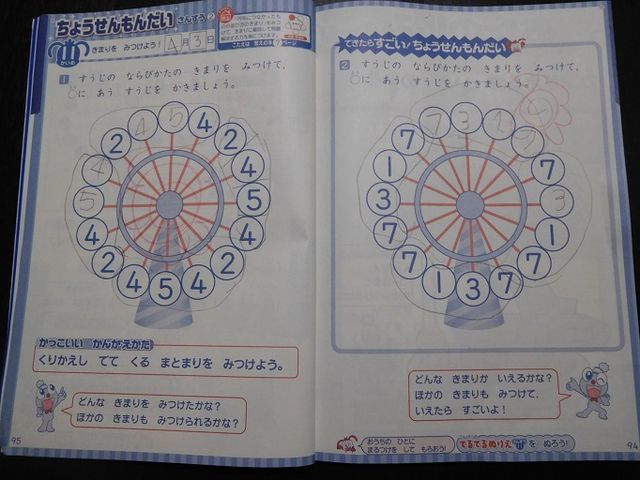 ちょうせんもんだい さんすう②
きまりを みつけよう！ 4月3日
こたえは 答えの本7ページ
1 すうじの ならびかたの きまりを みつけて、
○に あう すうじを かきましょう。
4 5 4 2 4 5 4 2 4 5 4 2 4 5 4 2
かっこいい かんがえかた
くりかえし でて くる まとまりを みつけよう。
どんな きまりを みつけたかな？
ほかの きまりも みつけられるかな？
95
できたらすごい！ちょうせんもんだい
2 すうじの ならびかたの きまりを みつけて、
○に あう すうじを かきましょう。
7 3 1 7 7 3 1 7 7 3 1 7 7 1 3 7
どんな きまりか いえるかな？
ほかの きまりも みつけて、
いえたら すごいよ！
おうちの ひとに
まるつけを して もらおう！
でるでるぬりえ を ぬろう！
94